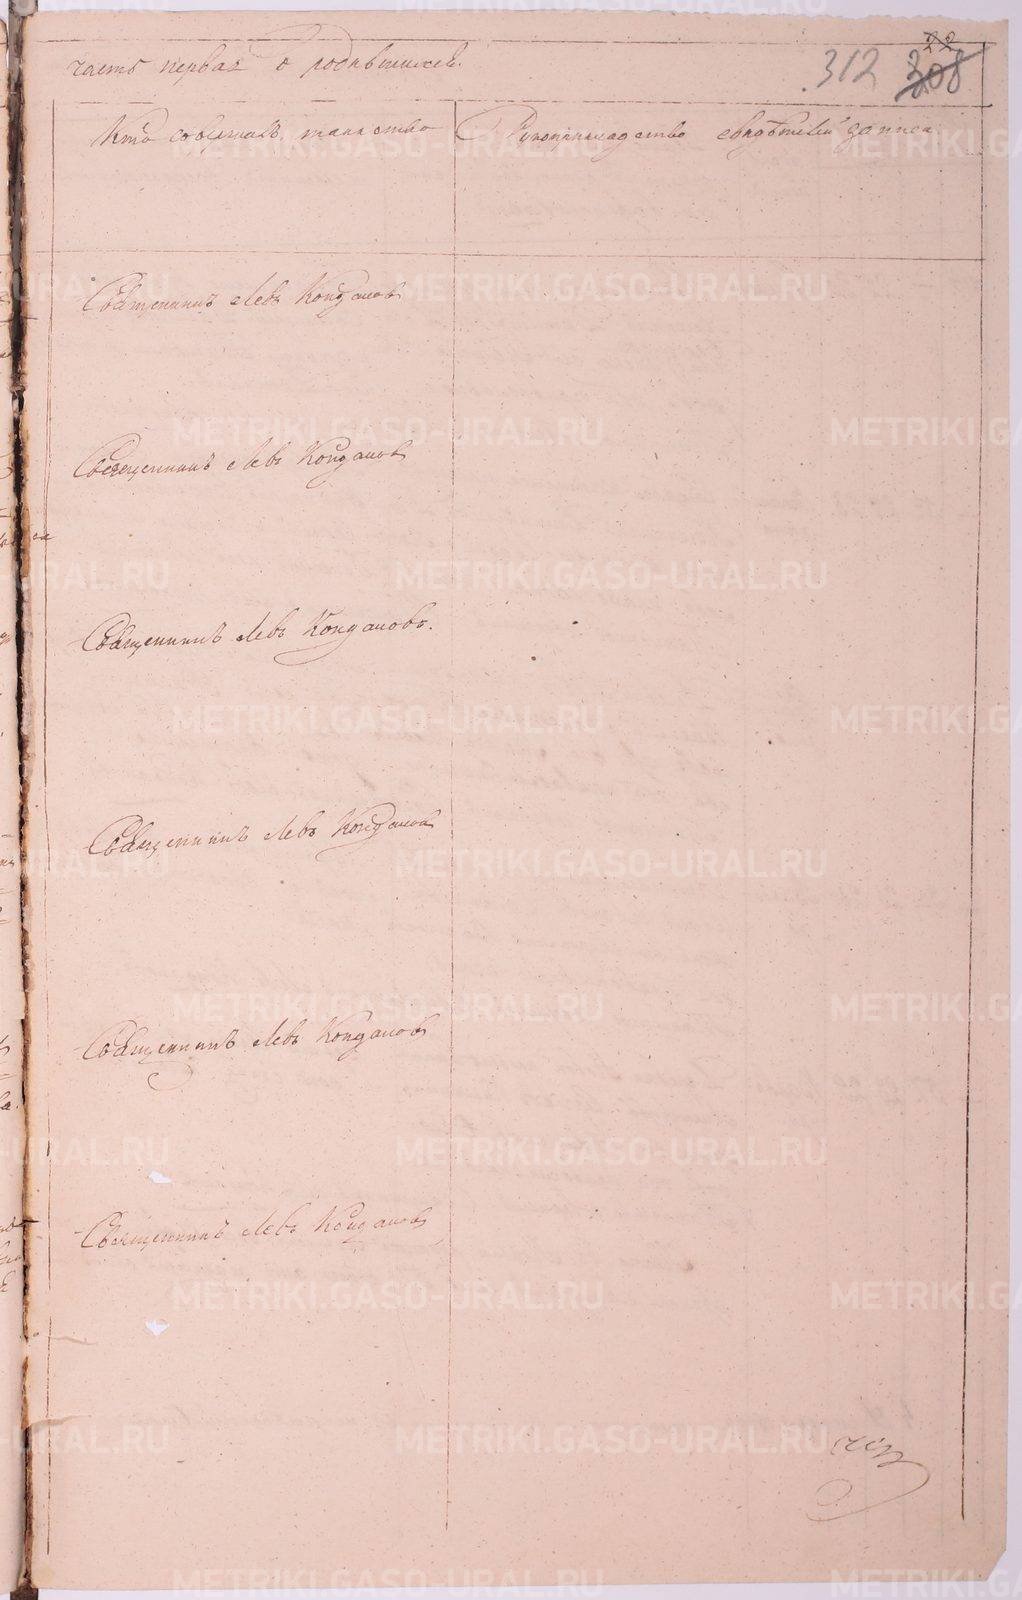 часть первая о родившихся.
312 308
22
Кто совершалъ таинство
Рукоприкладство свидѣтелей записи
Священникъ Левъ Кондаков
Священникъ Левъ Кондаков
Священникъ Левъ Кондаковъ.
Священникъ Левъ Кондаков
Священникъ Левъ Кондаков
Священникъ Левъ Кондаков
METRIKI.GASO-URAL.RU